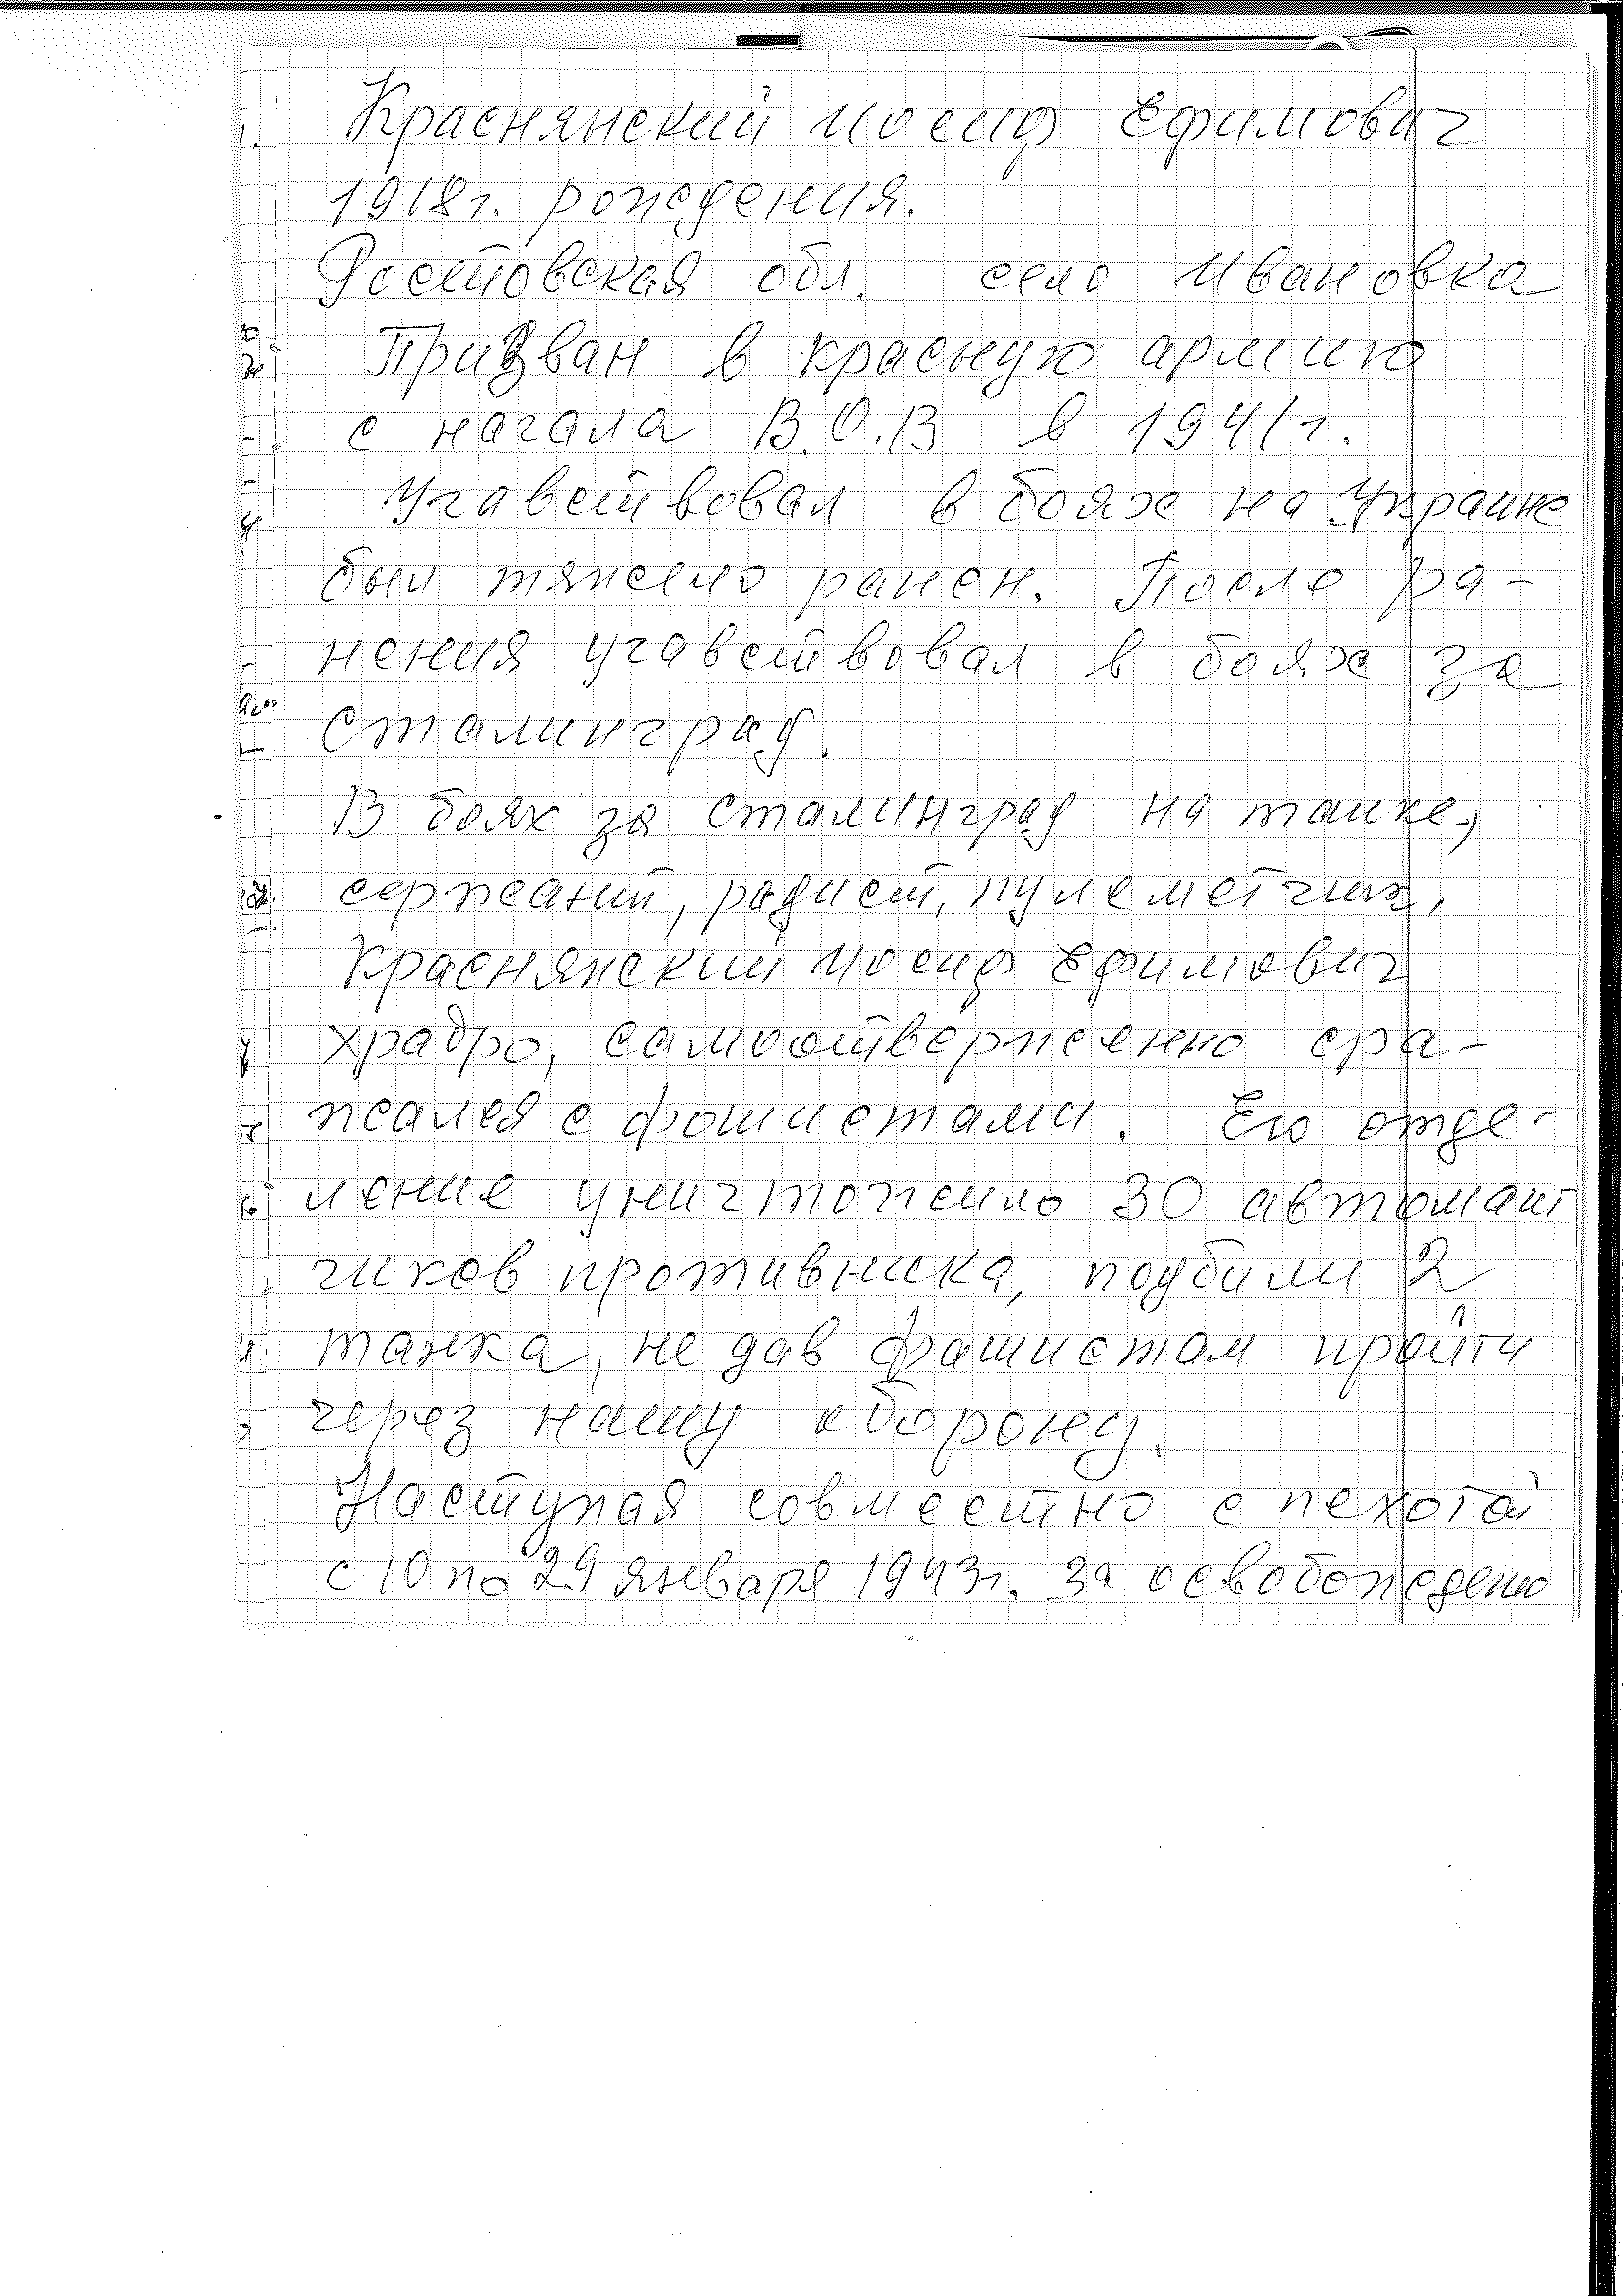 Краснянский Иосиф Ефимович
1918г. рождения.
Ростовская обл. село Ивановка
Призван в красную армию
с начала В.О.В в 1941г.
Учавствовал в боях на Украине
был тяжело ранен. После ра-
нения учавствовал в боях за
Сталинград.
В боях за Сталинград на танке,
сержант, радист, пулеметчик,
Краснянский Иосиф Ефимович
храбро, самоотверженно сра-
жался с фошистами. Его отде-
ление уничтожило 30 автомат
чиков противника, подбили 2
танка, не дав фашистам пройти
через нашу оборону.
Наступая совместно с пехотой
с 10 по 29 января 1943г. за освобождению